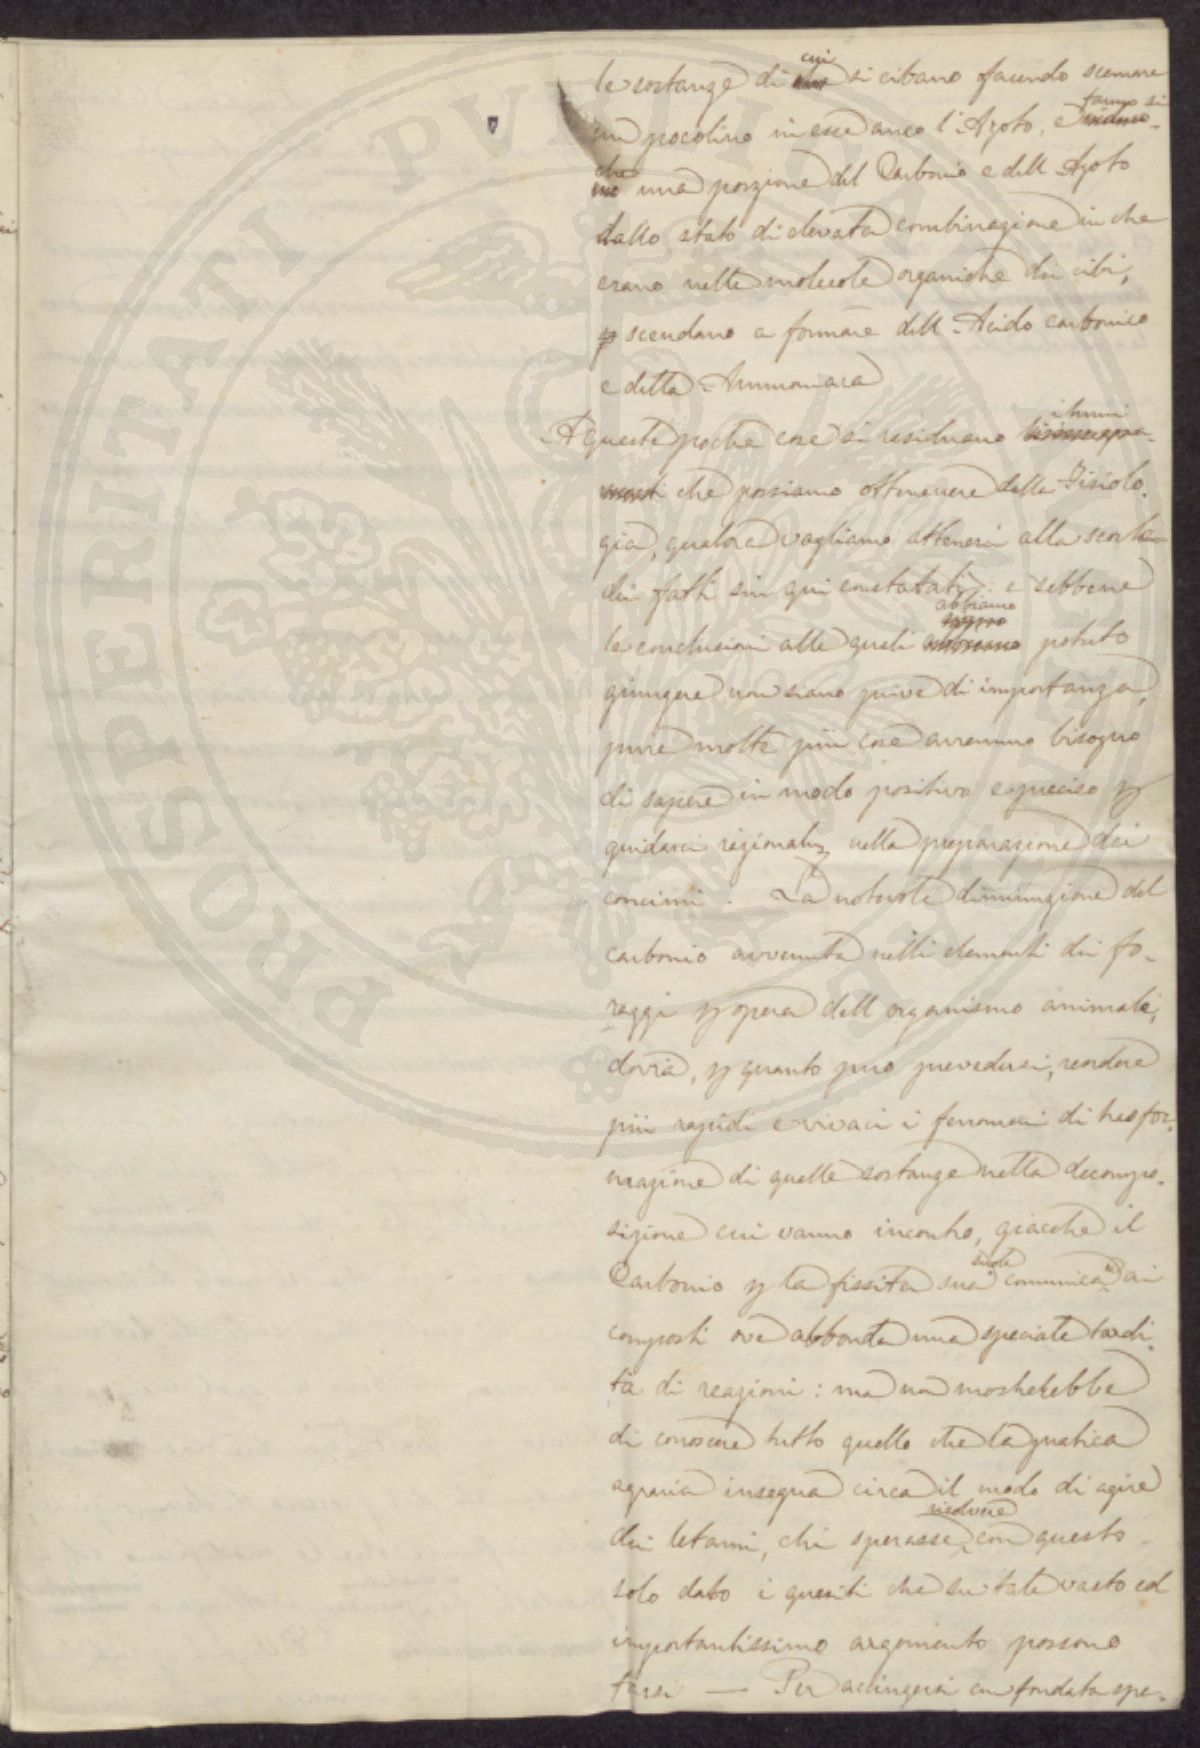 le sostanze di cui si cibano facendo scemare
un pocolino in esse anco l'Azoto, e fanno si
che una porzione del Carbonio e dell Azoto
dallo stato di elevata combinazione in che
erano nelle molecole organiche dei cibi,
scendano a formare dell Acido carbonico
e della Ammoniaca
A queste poche cose si residuano i lumi
che possiamo ottenere dalla Fisiolo-
gia, qualora vogliamo attenersi alla scorta
dei fatti sin qui constatati; e sebbene
le conclusioni alle quali abbiamo potuto
giungere non siano prive di importanza,
pure molte più cose avremmo bisogno
di sapere in modo positivo e preciso p
guidarci nella preparazione dei
concimi. La notevole diminuzione del
carbonio avvenuta nelli elementi dei fo-
raggi p opera dell organismo animale,
dovrà, p quanto può prevedersi, rendere
più rapidi e vivaci i fenomeni di trasfor-
mazione di quelle sostanze nella decompo-
sizione cui vanno incontro, giacchè il
Carbonio p la fissità sua suole comunicare ai
composti ove abbonda una speciale tardi-
tà di reazioni: ma non mostrerebbe
di conoscere tutto quello che la pratica
agraria insegna circa il modo di agire
dei letami, chi sperasse risolvere con questo
solo dato i quesiti che su tale vasto ed
importantissimo argomento possono
farsi — Per accingersi con fondata spe-
PROSPERITATI PUBLICAE